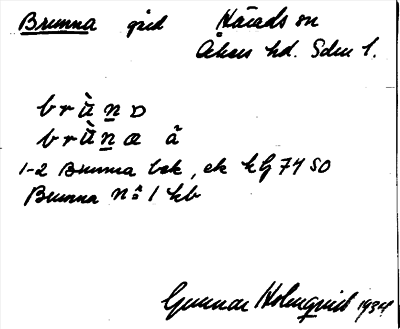 Brunna gård Härads sn
Åkers hd. Sdm l.
brùn̲ɒ
brùn̲æ å
1-2 Brunna bek, ek kG 74 SO
Brunna N:o 1 hb
Gunnar Holmquist 1934